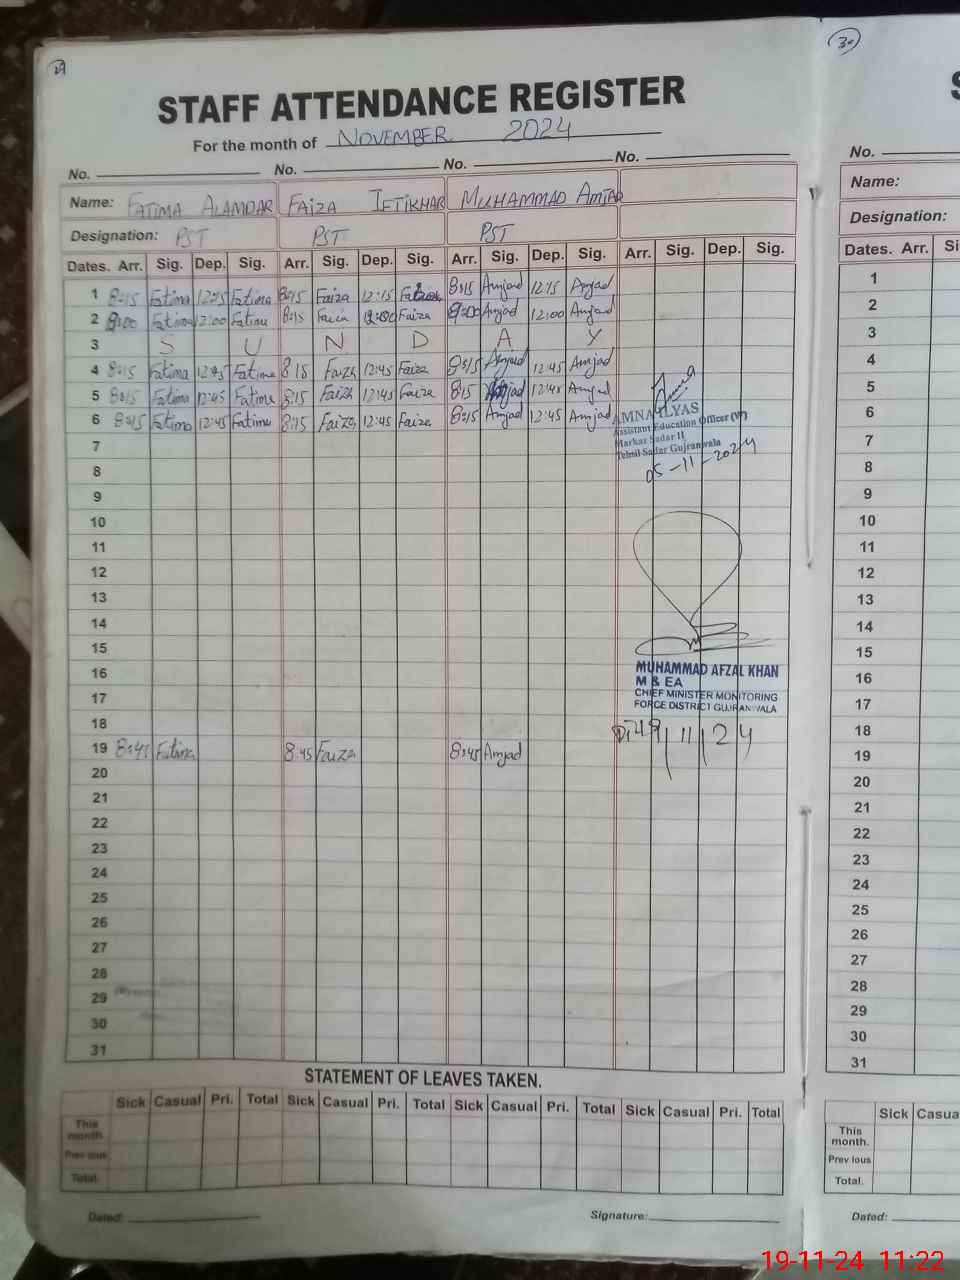 29
STAFF ATTENDANCE REGISTER
For the month of NOVEMBER 2024
No. No. No. No.
Name: FATIMA ALAMDAR FAIZA IFTIKHAR MUHAMMAD AMJAD
Designation: PST PST PST
Dates. Arr. Sig. Dep. Sig. Arr. Sig. Dep. Sig. Arr. Sig. Dep. Sig. Arr. Sig. Dep. Sig.
1 8:15 Fatima 12:15 Fatima 8:15 Faiza 12:15 8:15 Amjad 12:15 Amjad
2 Fatima 12:00 Fatima 8:15 Faiza 12:00 Faiza Amjad 12:00 Amjad
3 S U N D A Y
4 8:15 Fatima 12:45 Fatima 8:15 Faiza 12:45 Faiza 8:15 Amjad 12:45 Amjad
5 8:15 Fatima 12:45 Fatima 8:15 Faiza 12:45 Faiza 8:15 Amjad 12:45 Amjad
6 8:15 Fatima 12:45 Fatima 8:15 Faiza 12:45 Faiza 8:15 Amjad 12:45 Amjad
AMNA ILYAS
Assistant Education Officer (W)
Markaz Sadar II
Tehsil Sadar Gujranwala
05-11-2024
7
8
9
10
11
12
13
14
15
16
17
18
MUHAMMAD AFZAL KHAN
M & EA
CHIEF MINISTER MONITORING
FORCE DISTRICT GUJRANWALA
19/11/24
19 8:45 Fatima 8:45 Faiza 8:45 Amjad
20
21
22
23
24
25
26
27
28
29
30
31
STATEMENT OF LEAVES TAKEN.
Sick Casual Pri. Total Sick Casual Pri. Total Sick Casual Pri. Total Sick Casual Pri. Total
This month.
Prev ious
Total.
Dated: Signature:
30
S
No.
Name:
Designation:
Dates. Arr. Si
1
2
3
4
5
6
7
8
9
10
11
12
13
14
15
16
17
18
19
20
21
22
23
24
25
26
27
28
29
30
31
Sick Casua
This month.
Prev ious
Total.
Dated:
19-11-24 11:22